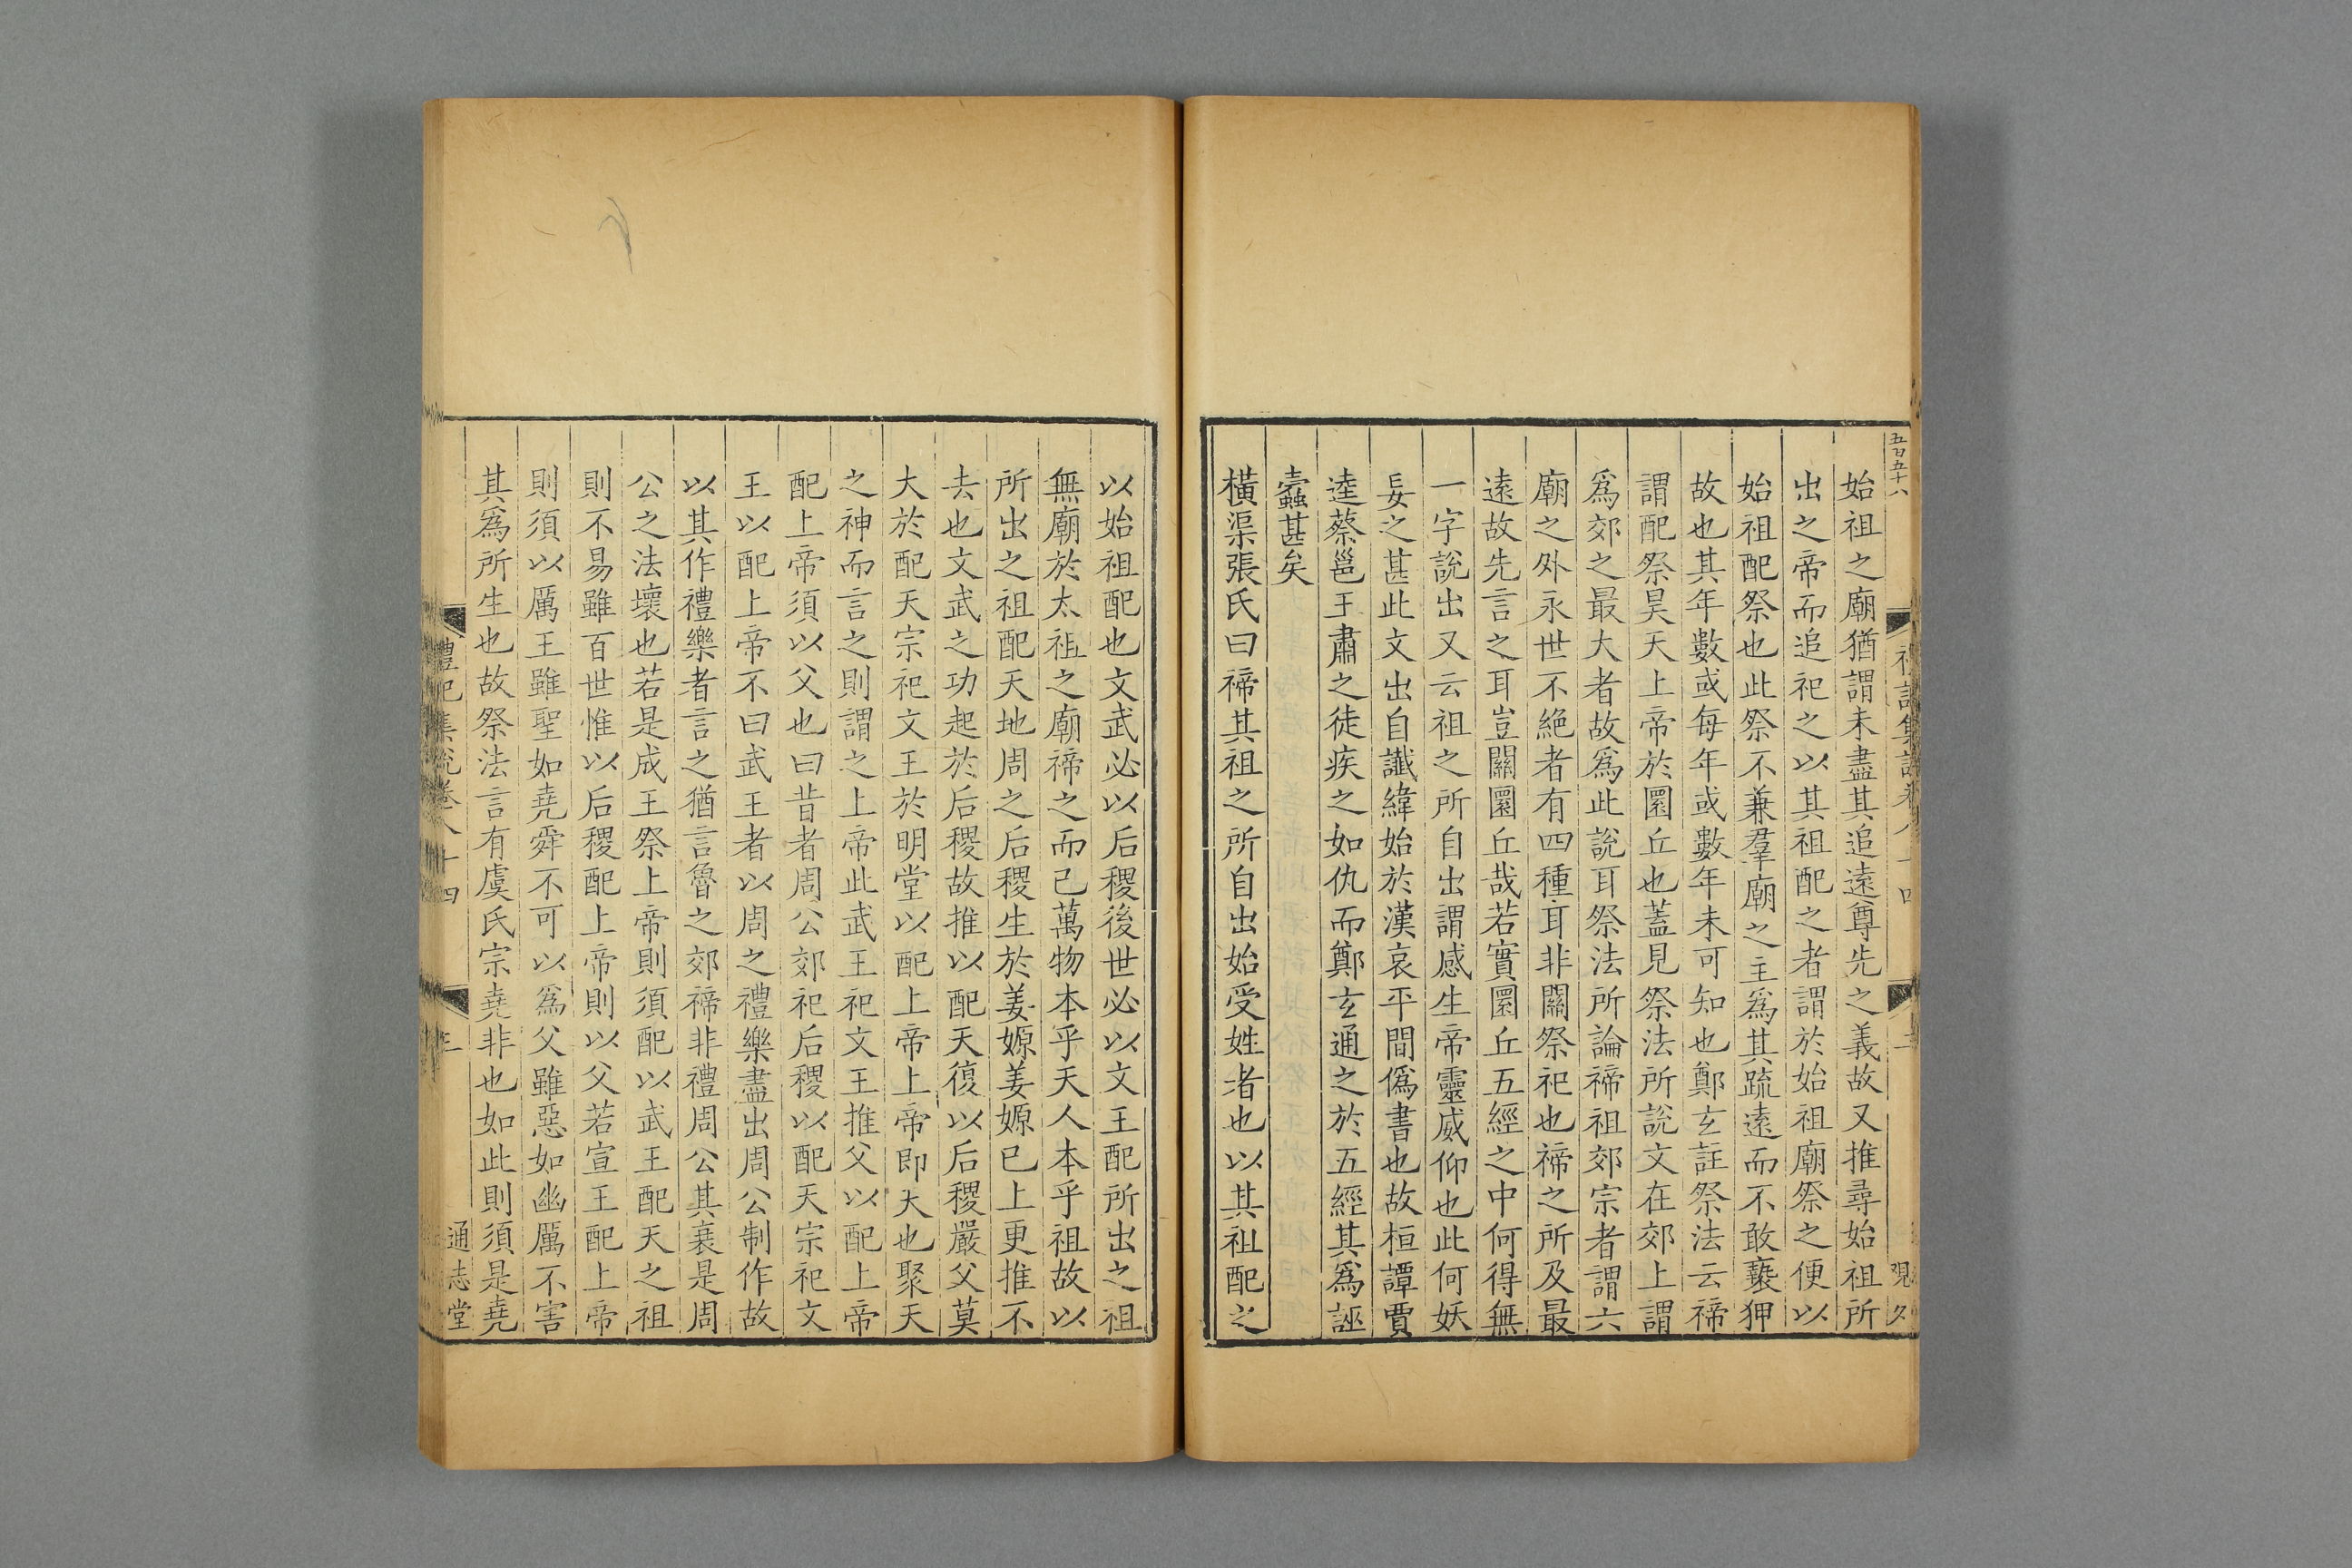 五百五十八
始祖之廟猶謂未盡其追遠尊先之義故又推尋始祖所
出之帝而追祀之以其祖配之者謂於始祖廟祭之便以
始祖配祭也此祭不兼羣廟之主爲其疏遠而不敢褻狎
故也其年數或每年或數年未可知也鄭玄註祭法云禘
謂配祭昊天上帝於圜丘也蓋見祭法所說文在郊上謂
爲郊之最大者故爲此說耳祭法所論禘祖郊宗者謂六
廟之外永世不絕者有四種耳非關祭祀也禘之所及最
遠故先言之耳豈關圜丘哉若實圜丘五經之中何得無
一字說出又云祖之所自出謂感生帝靈威仰也此何妖
妄之甚此文出自讖緯始於漢哀平間僞書也故桓譚賈
逵蔡邕王肅之徒疾之如仇而鄭玄通之於五經其爲誣
蠹甚矣
橫渠張氏曰禘其祖之所自出始受姓者也以其祖配之
以始祖配也文武必以后稷後世必以文王配所出之祖
無廟於太祖之廟禘之而已萬物本乎天人本乎祖故以
所出之祖配天地周之后稷生於姜嫄姜嫄已上更推不
去也文武之功起於后稷故推以配天復以后稷嚴父莫
大於配天宗祀文王於明堂以配上帝上帝即天也聚天
之神而言之則謂之上帝此武王祀文王推父以配上帝
配上帝須以父也曰昔者周公郊祀后稷以配天宗祀文
王以配上帝不曰武王者以周之禮樂盡出周公制作故
以其作禮樂者言之猶言魯之郊禘非禮周公其衰是周
公之法壞也若是成王祭上帝則須配以武王配天之祖
則不易雖百世惟以后稷配上帝則以父若宣王配上帝
則須以厲王雖聖如堯舜不可以爲父雖惡如幽厲不害
其爲所生也故祭法言有虞氏宗堯非也如此則須是堯
禮記集說卷八十四
三
通志堂